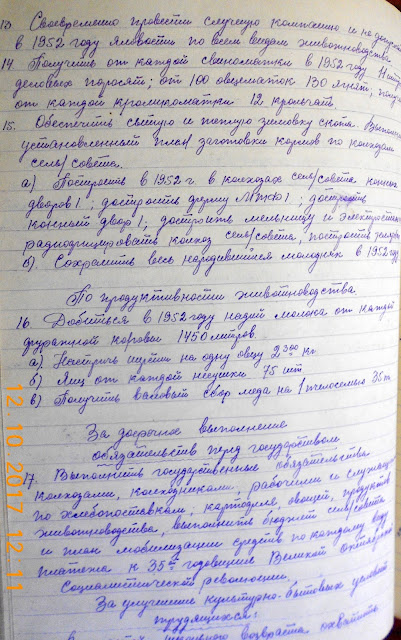 13. Своевременно провести случную компанию и не допуст
в 1952 году яловости по всем видам животноводства
14. Получить от каждой свиноматки в 1952 году
деловых поросят; от 100 овцематок 130 ягнят,
от каждой крольчоматки 12 крольчат
15. Обеспечить сытую и теплую зимовку скота. Выполни
установленный план заготовки кормов по колхозам
сель/совета.
а) Построить в 1952 г. в колхозах сель/совета конных
дворов 1; достроить ферму МТФ 1; достроить
конный двор 1; достроить мельницу и электростан
радиофицировать колхоз сель/совета, построить
б). Сохранить весь народившийся молодняк в 1952 году
По продуктивности животноводства
16. Добиться в 1952 году надой молока от каждой
фуражной коровы 1450 литров.
а) Настричь шерсти на одну овцу 2 300 кг
б) Яиц от каждой несушки 75 шт
в) Получить валовый сбор меда на 1 пчелосемью 35 т
За досрочное выполнение
обязательств перед государством
17. Выполнить государственные обязательства
колхозами, колхозниками, рабочими и служащи
по хлебопоставкам, картофеля овощей, продуктов
животноводства, выполнить бюджет сель/совета
и план мобилизации средств по каждому виду
платежа к 35й годовщине Великой Октябрьск
Социалистической революции.
За улучшение культурно-бытовых условий
трудящихся:
школьного возраста охватить
12.10.2017 12:11